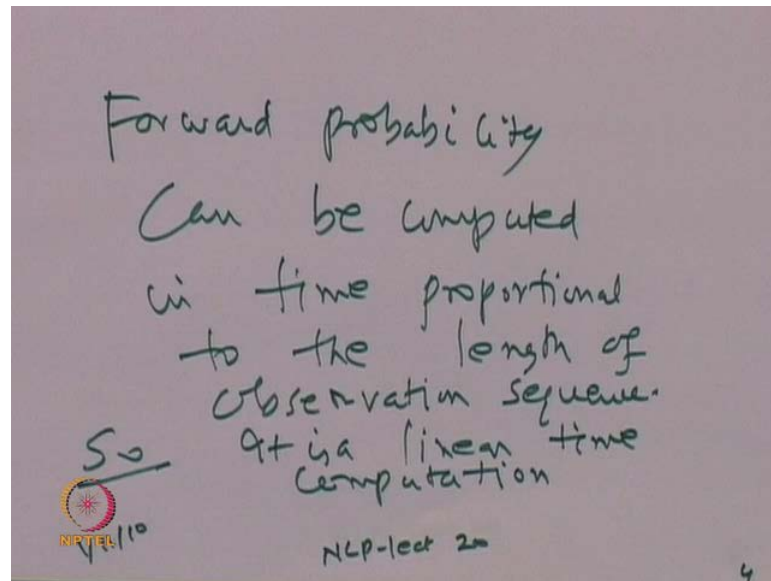 Forward probability
Can be computed
in time proportional
to the length of
observation sequence.
So It is a linear time
computation
NPTEL
NLP-lect 20
4